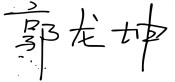 郭龙坤